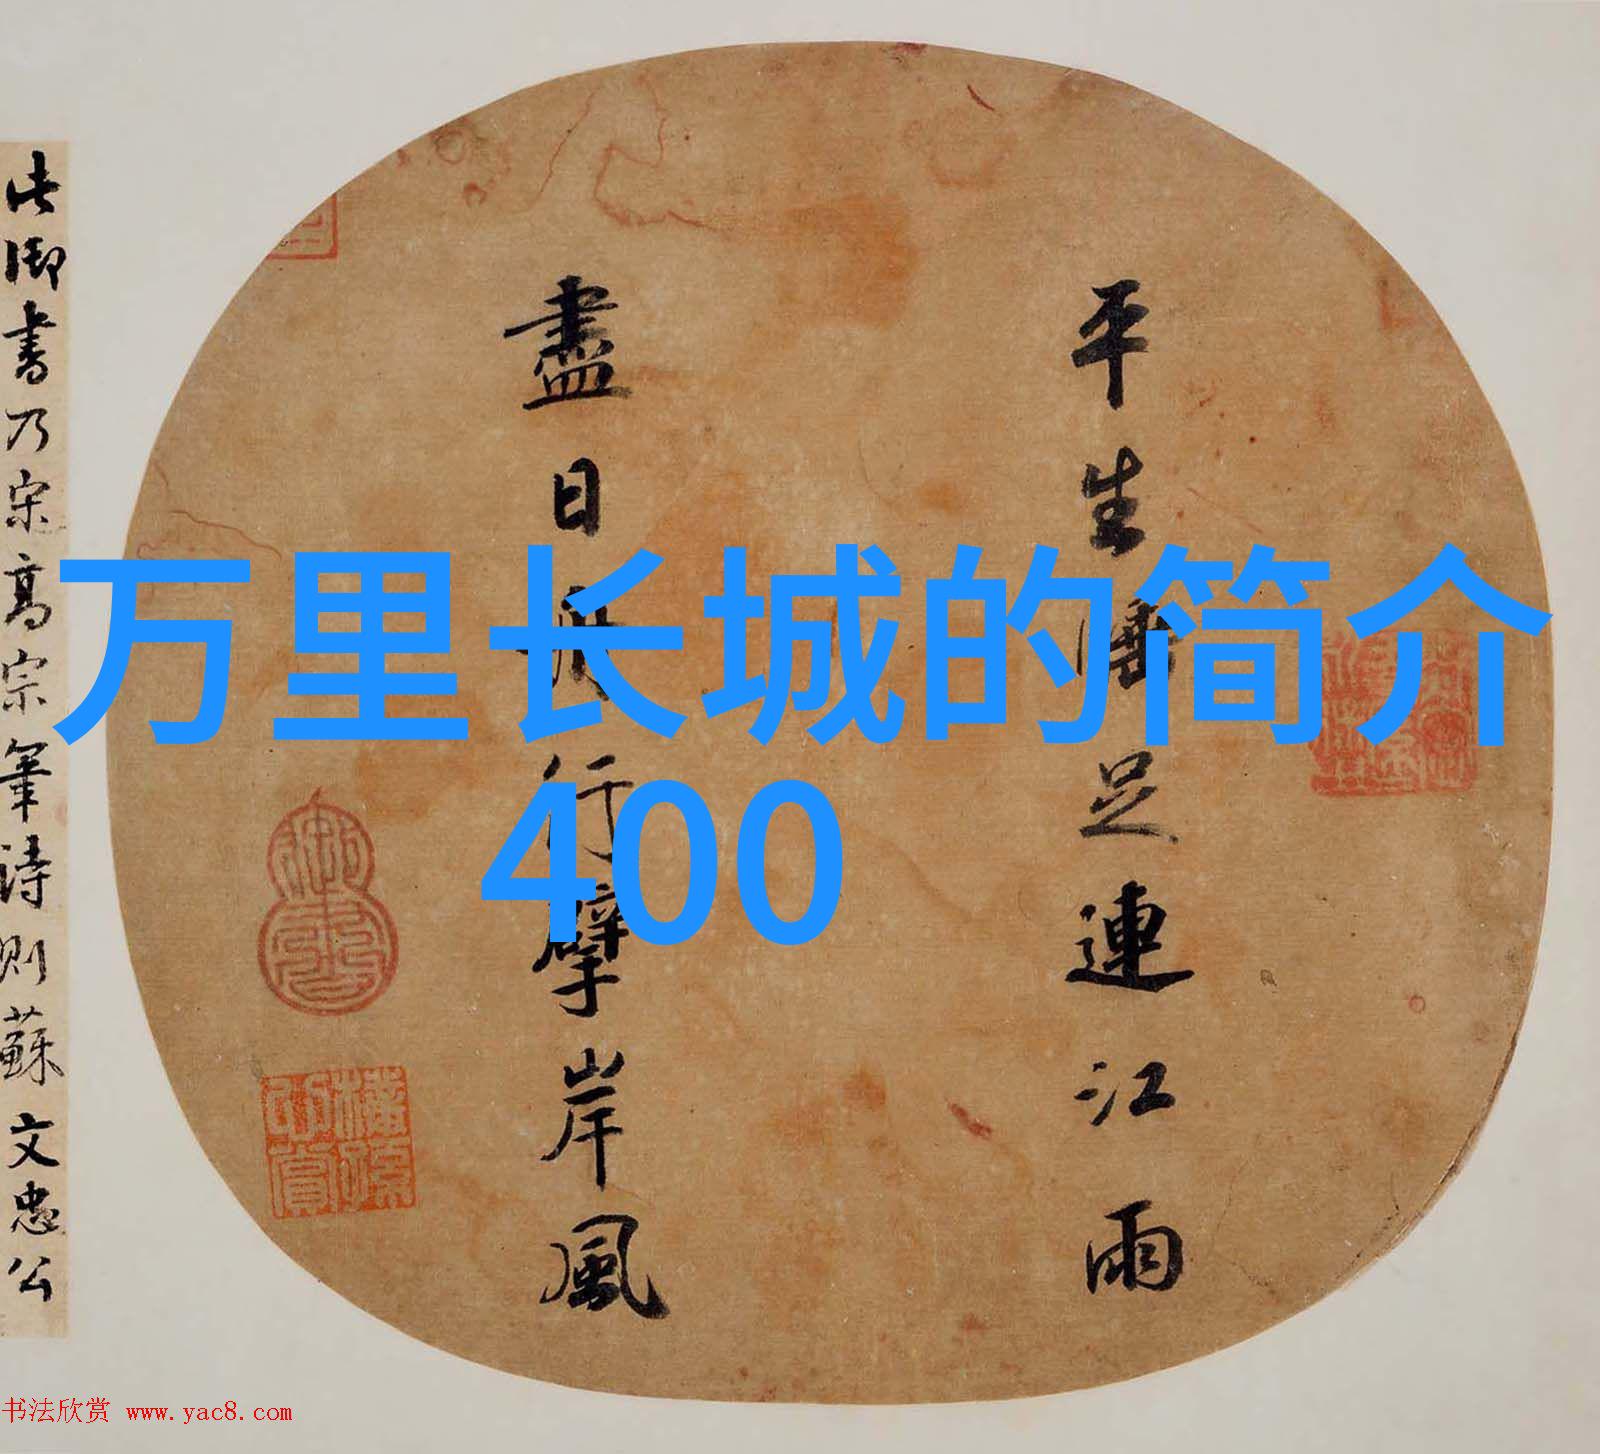 万里长城的简介
400
平生睡足連江雨
盡日舟行擘岸風
此御書乃宋高宗筆詩則蘇文忠公
书法欣赏 www.yac8.com